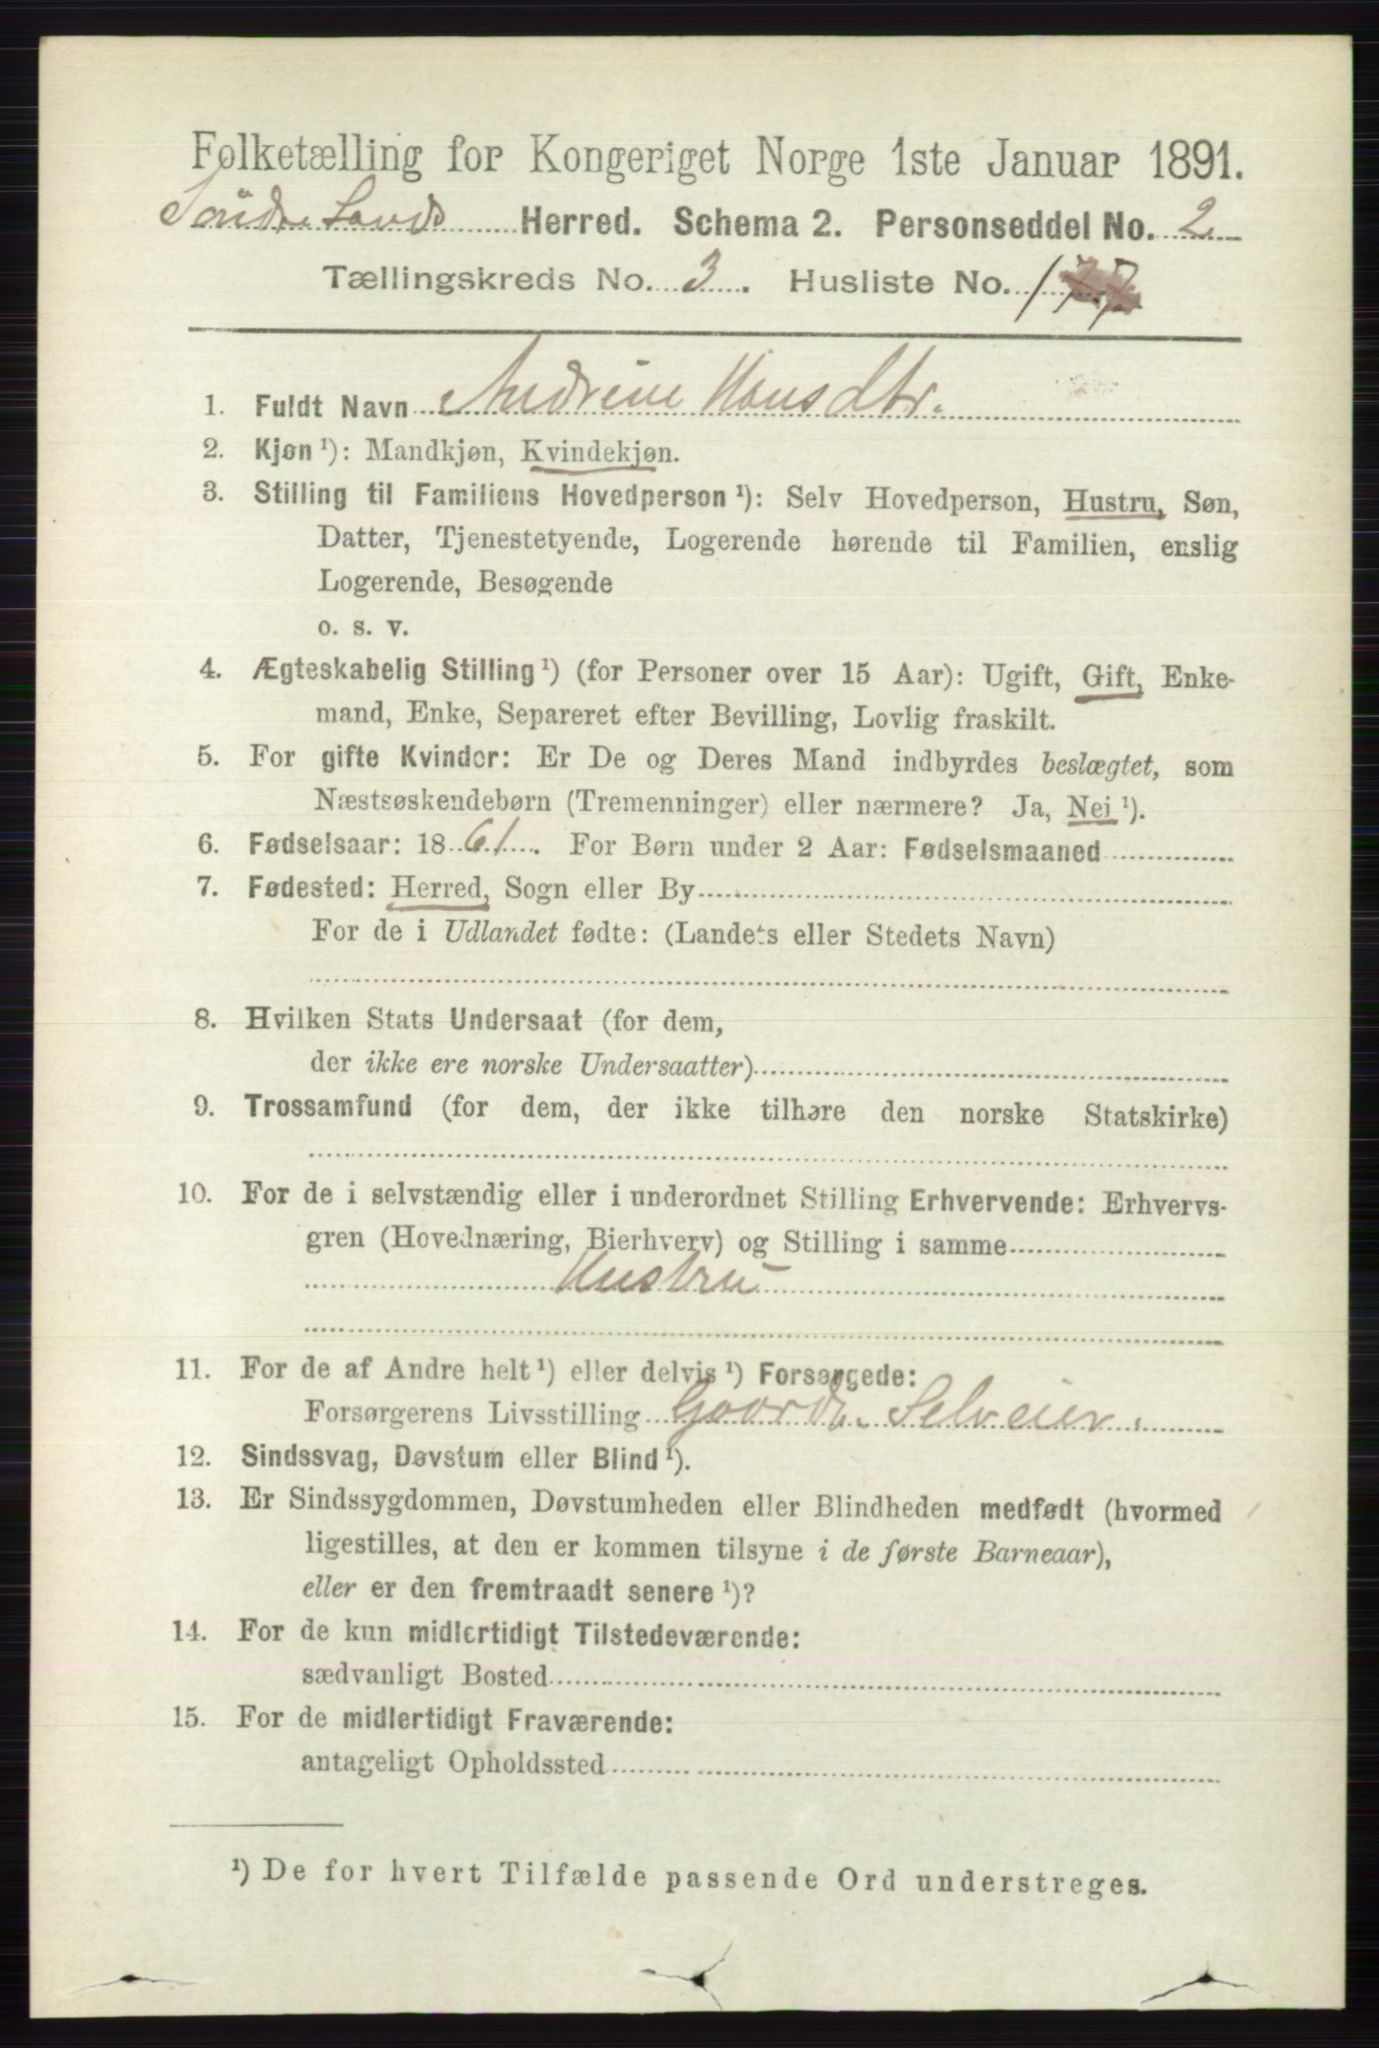 Folketælling for Kongeriget Norge 1ste Januar 1891.
Søndre Lands Herred. Schema 2. Personseddel No. 2
Tællingskreds No. 3. Husliste No. 177
1. Fuldt Navn Andrine Hansdtr.
2. Kjøn ¹): Mandkjøn, Kvindekjøn.
3. Stilling til Familiens Hovedperson ¹): Selv Hovedperson, Hustru, Søn,
Datter, Tjenestetyende, Logerende hørende til Familien, enslig
Logerende, Besøgende
o. s. v.
4. Ægteskabelig Stilling ¹) (for Personer over 15 Aar): Ugift, Gift, Enke-
mand, Enke, Separeret efter Bevilling, Lovlig fraskilt.
5. For gifte Kvinder: Er De og Deres Mand indbyrdes beslægtet, som
Næstsøskendebørn (Tremenninger) eller nærmere? Ja, Nei ¹).
6. Fødselsaar: 1861. For Børn under 2 Aar: Fødselsmaaned
7. Fødested: Herred, Sogn eller By
For de i Udlandet fødte: (Landets eller Stedets Navn)
8. Hvilken Stats Undersaat (for dem,
der ikke ere norske Undersaatter)
9. Trossamfund (for dem, der ikke tilhøre den norske Statskirke)
10. For de i selvstændig eller i underordnet Stilling Erhvervende: Erhvervs-
gren (Hovednæring, Bierhverv) og Stilling i samme
Hustru
11. For de af Andre helt ¹) eller delvis ¹) Forsørgede:
Forsørgerens Livsstilling Gaardbr. Selveier.
12. Sindssvag, Døvstum eller Blind ¹).
13. Er Sindssygdommen, Døvstumheden eller Blindheden medfødt (hvormed
ligestilles, at den er kommen tilsyne i de første Barneaar),
eller er den fremtraadt senere ¹)?
14. For de kun midlertidigt Tilstedeværende:
sædvanligt Bosted
15. For de midlertidigt Fraværende:
antageligt Opholdssted
¹) De for hvert Tilfælde passende Ord understreges.